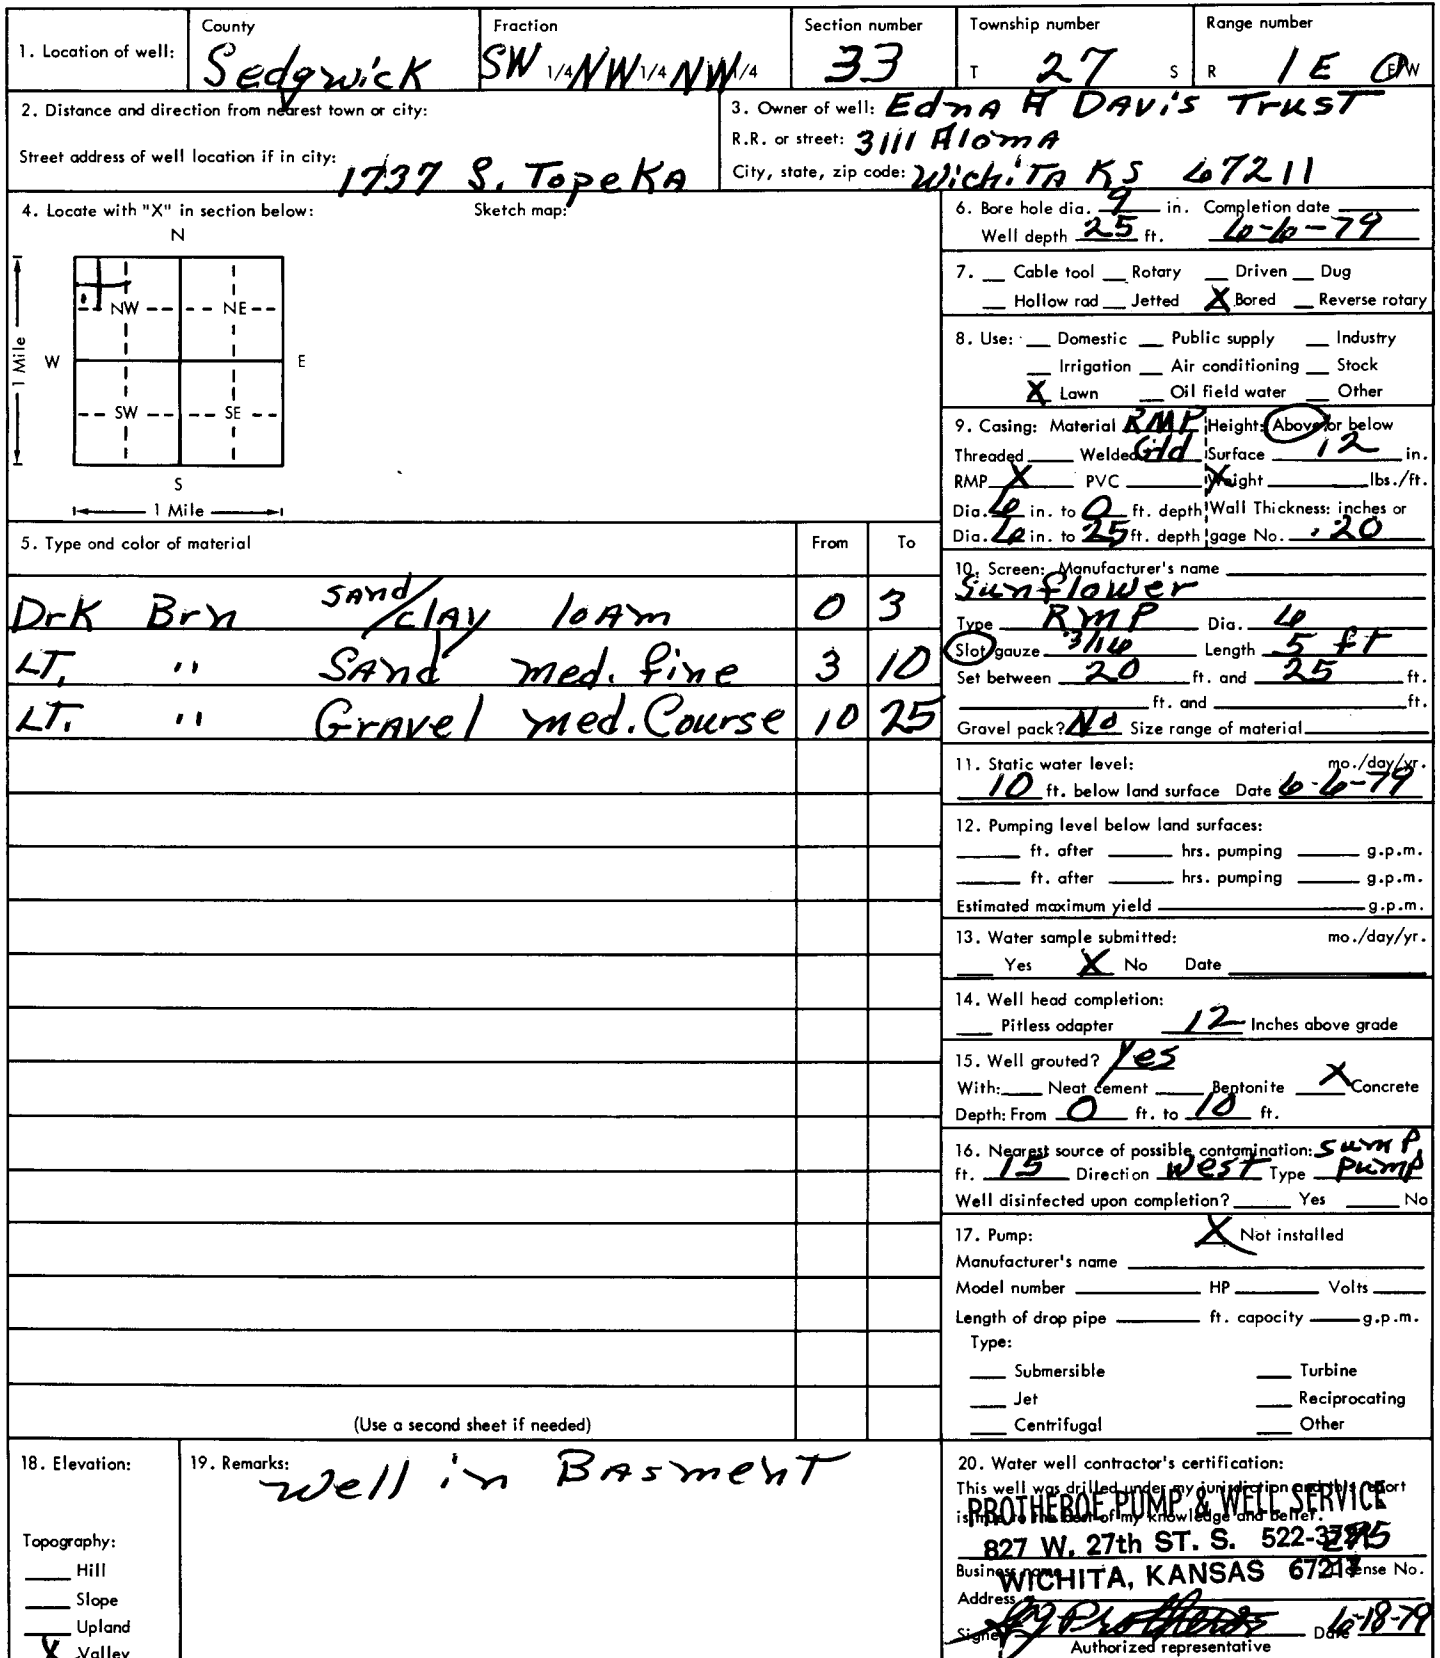 1. Location of well: County Sedgwick Fraction SW 1/4 NW 1/4 NW 1/4 Section number 33 Township number T 27 S Range number R 1E E/W
2. Distance and direction from nearest town or city:
Street address of well location if in city: 1737 S. Topeka
3. Owner of well: Edna A Davis Trust
R.R. or street: 3111 Aloma
City, state, zip code: Wichita KS 67211
4. Locate with "X" in section below: Sketch map:
N
NW NE
W E
1 Mile
SW SE
S
1 Mile
5. Type and color of material From To
Drk Brn sand/clay loam 0 3
LT. " Sand med. fine 3 10
LT. " Gravel med. Course 10 25
(Use a second sheet if needed)
6. Bore hole dia. 9 in. Completion date
Well depth 25 ft. 6-6-79
7. __ Cable tool __ Rotary __ Driven __ Dug
__ Hollow rad __ Jetted X Bored __ Reverse rotary
8. Use: __ Domestic __ Public supply __ Industry
__ Irrigation __ Air conditioning __ Stock
X Lawn __ Oil field water __ Other
9. Casing: Material RMP Height: Above or below
Threaded ____ Welded Gld Surface 12 in.
RMP X PVC ____ Weight ____ lbs./ft.
Dia. 6 in. to 0 ft. depth Wall Thickness: inches or
Dia. 6 in. to 25 ft. depth gage No. .20
10. Screen: Manufacturer's name
Sunflower
Type RMP Dia. 6
Slot gauze 3/16 Length 5 ft
Set between 20 ft. and 25 ft.
____ ft. and ____ ft.
Gravel pack? No Size range of material
11. Static water level: mo./day/yr.
10 ft. below land surface Date 6-6-79
12. Pumping level below land surfaces:
____ ft. after ____ hrs. pumping ____ g.p.m.
____ ft. after ____ hrs. pumping ____ g.p.m.
Estimated maximum yield ____ g.p.m.
13. Water sample submitted: mo./day/yr.
__ Yes X No Date
14. Well head completion:
__ Pitless adapter 12 Inches above grade
15. Well grouted? Yes
With: __ Neat cement __ Bentonite X Concrete
Depth: From 0 ft. to 10 ft.
16. Nearest source of possible contamination: Sump
ft. 15 Direction West Type Pump
Well disinfected upon completion? ____ Yes ____ No
17. Pump: X Not installed
Manufacturer's name
Model number ____ HP ____ Volts
Length of drop pipe ____ ft. capacity ____ g.p.m.
Type:
__ Submersible __ Turbine
__ Jet __ Reciprocating
__ Centrifugal __ Other
18. Elevation:
Topography:
__ Hill
__ Slope
__ Upland
X Valley
19. Remarks: Well in Basment
20. Water well contractor's certification:
This well was drilled under my jurisdiction and this report
is true to the best of my knowledge and belief.
PROTHEROE PUMP & WELL SERVICE
827 W. 27th ST. S. 522-
Business name License No.
WICHITA, KANSAS 67217
Address
Signed Protheroe Date 6-18-79
Authorized representative